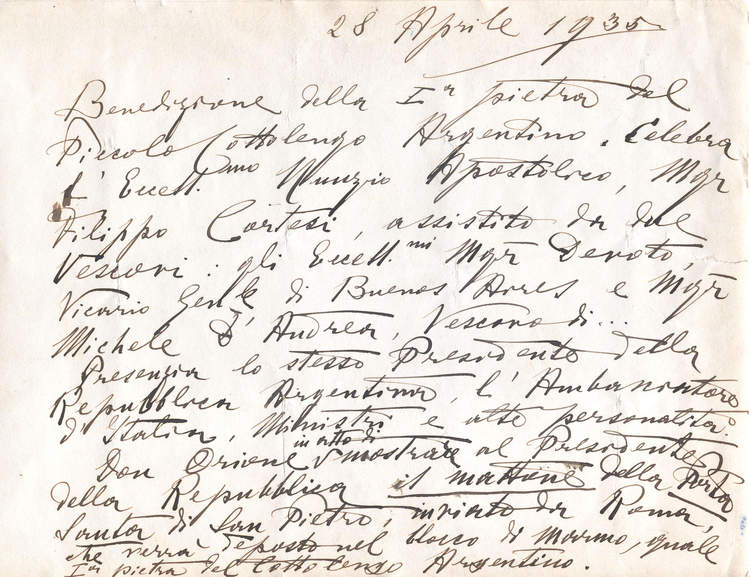 28 Aprile 1935
Benedizione della Iª pietra del
Piccolo Cottolengo Argentino. Celebra
l'Eccell.mo Nunzio Apostolico, Mgr
Filippo Cortesi, assistito da due
Vescovi: gli Eccell.mi Mgr Devoto,
Vicario Gen.le di Buenos Aires e Mgr
Michele D'Andrea, Vescovo di...
Presenzia lo stesso Presidente della
Repubblica Argentina, l'Ambasciatore
d'Italia, Ministri e alte personalità.
Don Orione in atto di mostrare al Presidente
della Repubblica il mattone della Porta
Santa di San Pietro, inviato da Roma,
che verrà deposto nel blocco di marmo, quale
Iª pietra del Cottolengo Argentino.